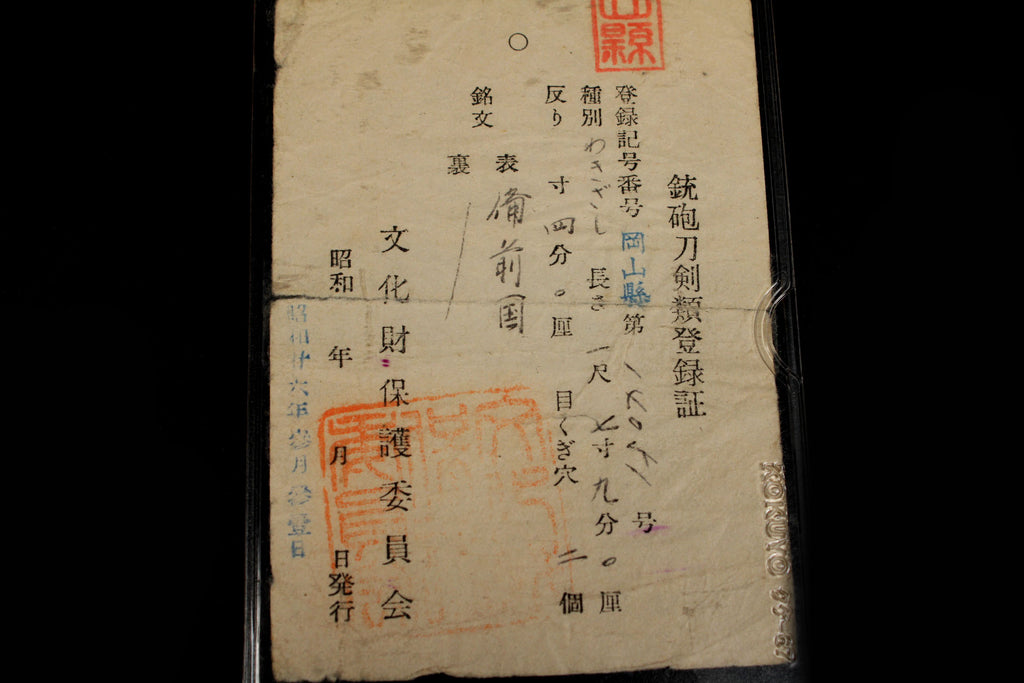 山縣
銃砲刀剣類登録証
登録記号番号 岡山縣 第 号
種別 わきざし 長さ 一尺 七寸 九分 〇厘
反り 寸 四分 〇厘 目くぎ穴 二個
銘文 表 備前国
裏
文化財保護委員会
昭和 年 月 日発行
昭和廿六年参月 壹日
KOKUYO